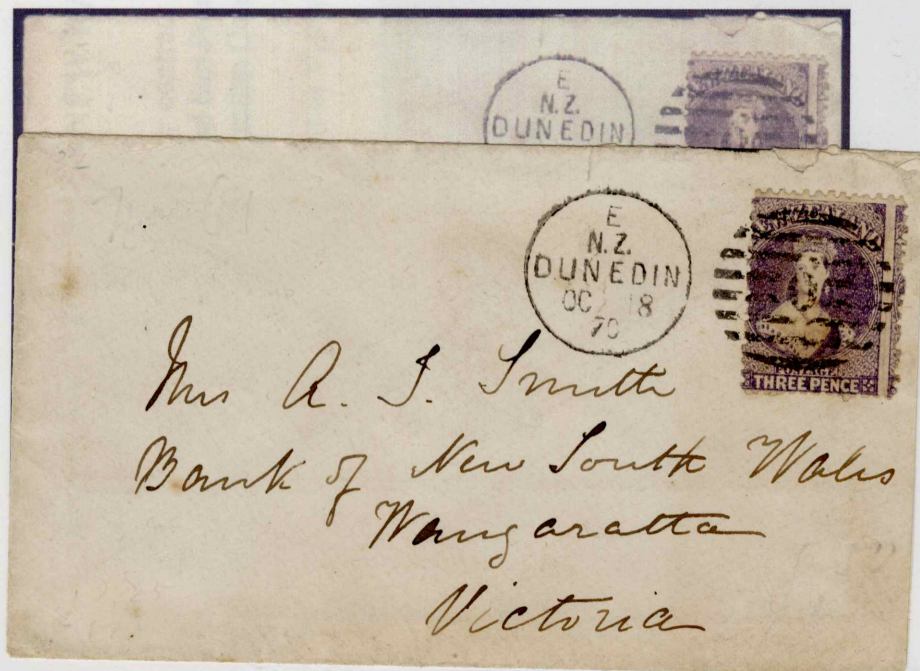 E
N.Z.
DUNEDIN
E
N.Z.
DUNEDIN
OC 18
70
POSTAGE
THREE PENCE
Mrs A. J. Smith
Bank of New South Wales
Wangaratta
Victoria